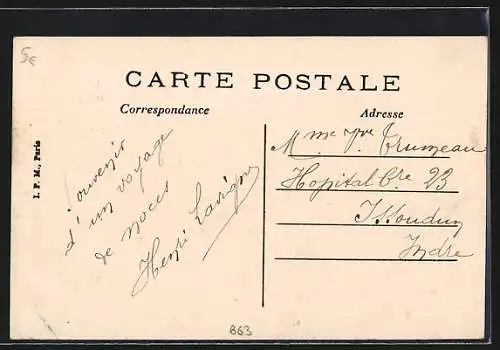 5€
CARTE POSTALE
Correspondance
Adresse
I. P. M., Paris
Souvenir
d'un voyage
de noces
Henri Lavigne
Mme Vve Trumeau
Hopital Cre 23
Issoudun
Indre
863